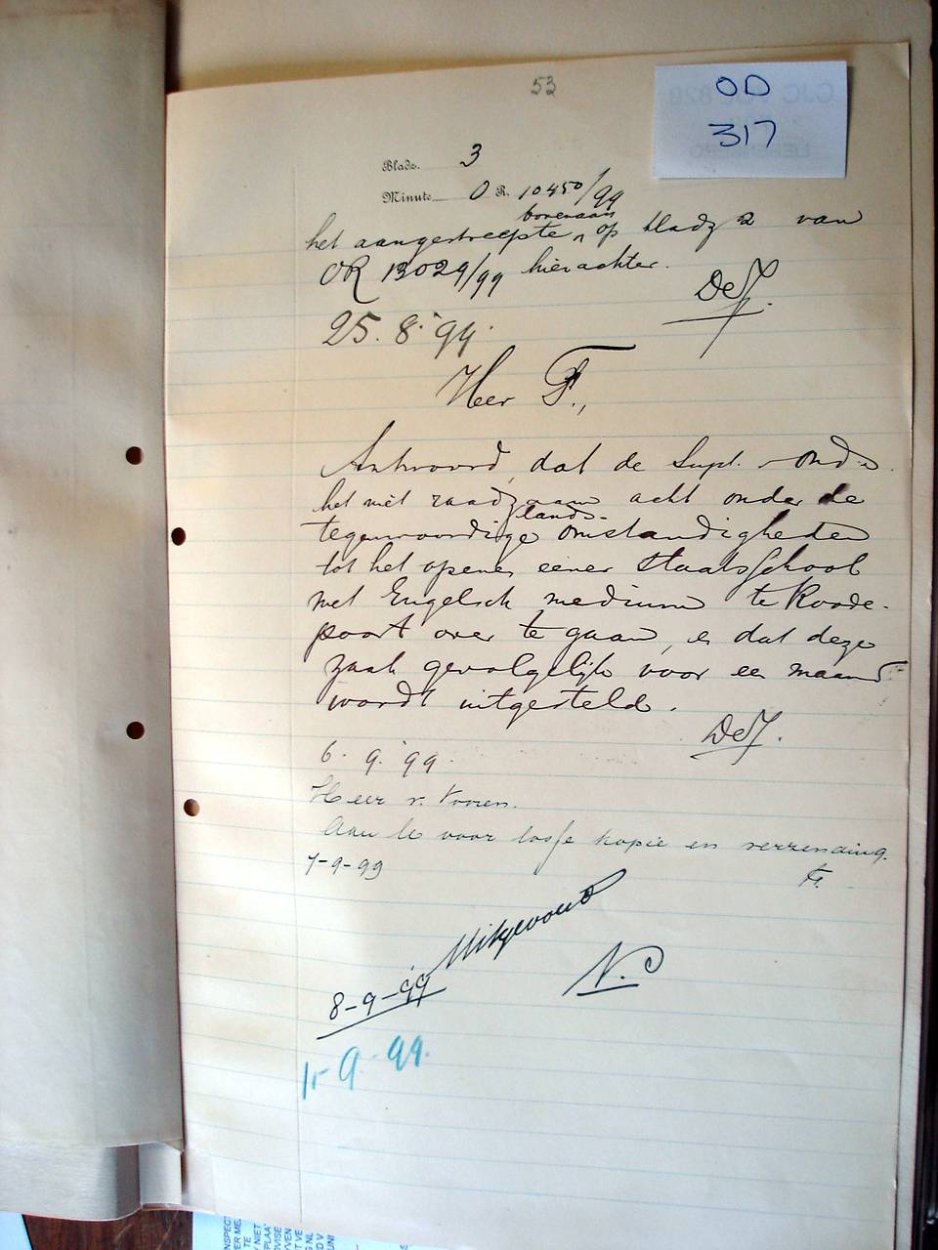 53
OD
317
Bladz. 3
Minute O R. 10450/99
bovenaan
het aangestreepte ^ op bladz 2 van
OR 13029/99 hierachter.
DeJ.
25.8.'99.
Heer F.,
Antwoord, dat de Supt. v. Ond.
het niet raadzaam acht onder de
lands-
tegenwoordige omstandigheden
tot het openen eener Staatsschool
met Engelsch medium te Roode-
poort over te gaan, en dat deze
zaak gevolgelijk voor een maand
wordt uitgesteld.
DeJ.
6.9.'99.
Heer v. Vooren.
voor losse kopie en verzending.
7-9-99
F.
Uitgevoerd
8-9-'99
N.
9.99.